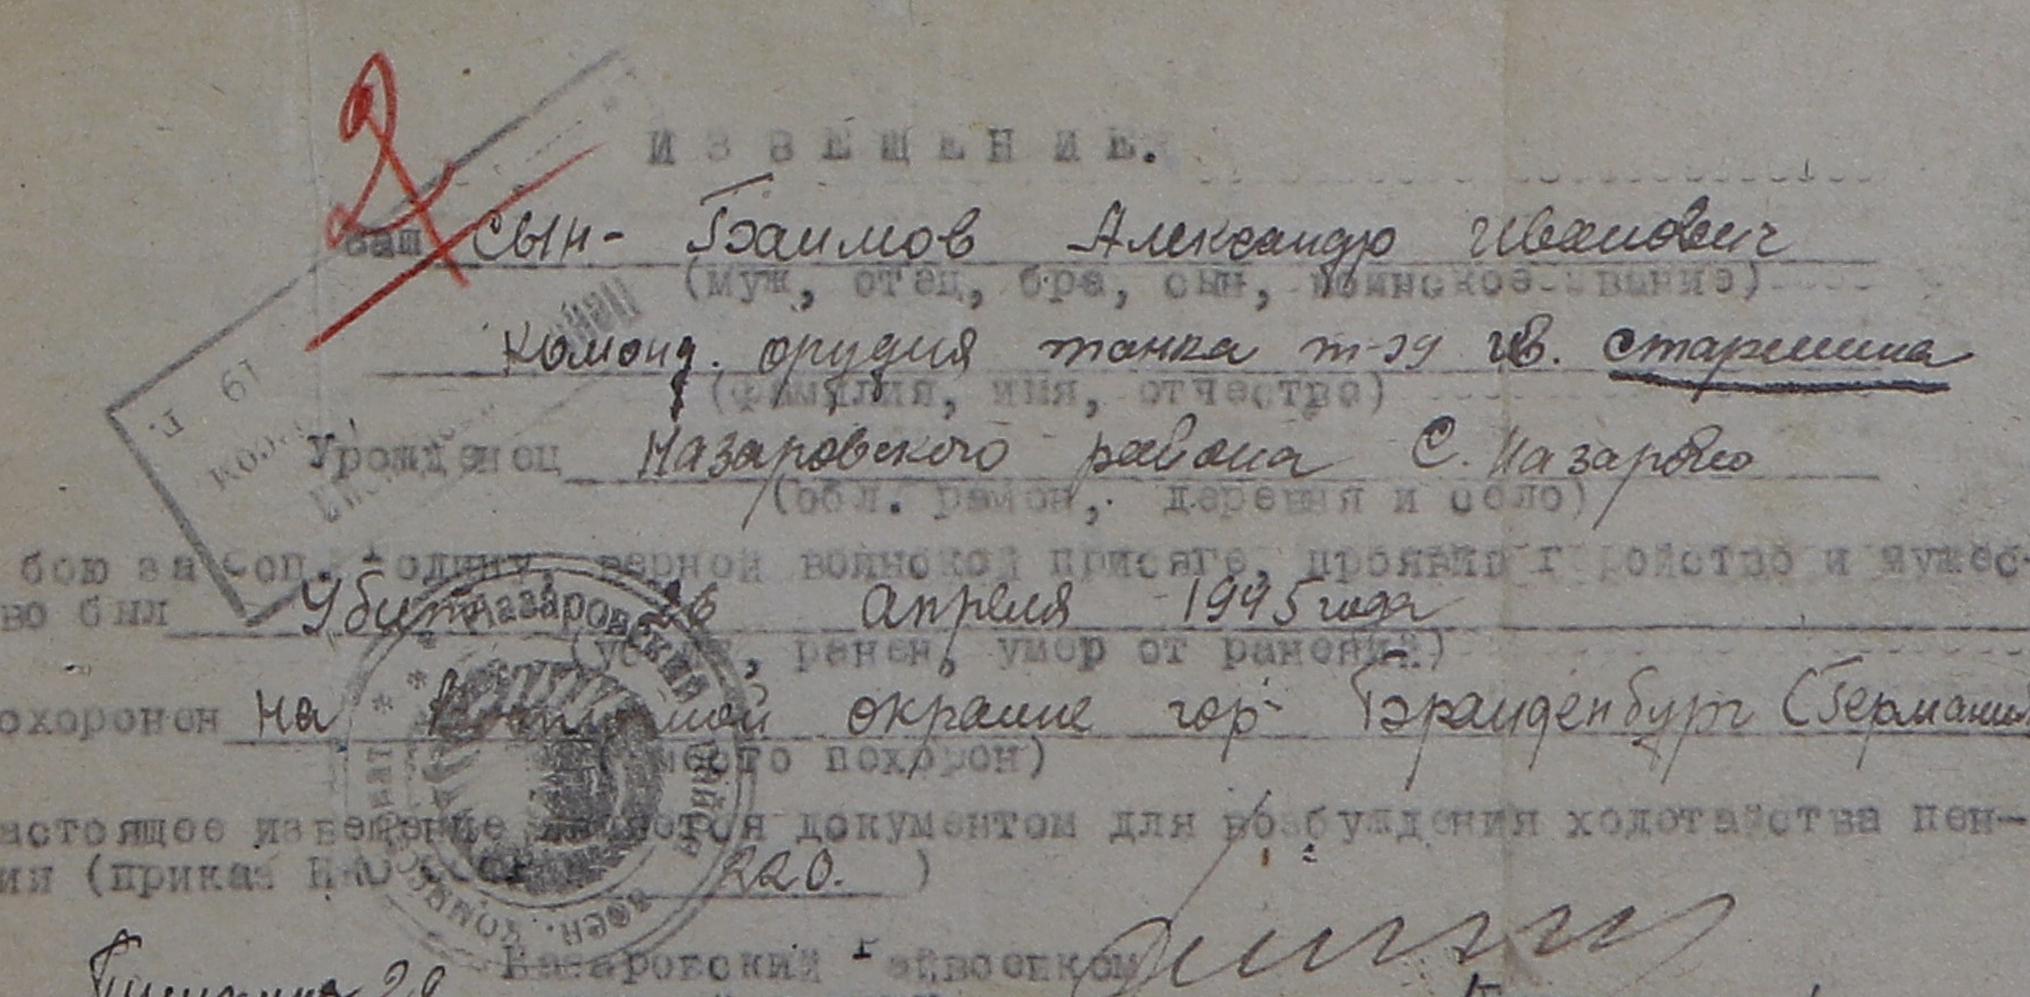 2
ИЗВЕЩЕНИЕ.
Ваш сын- Баимов Александр Иванович
(муж, отец, бра, сын, воинское звание)
команд. орудия танка т-34 гв. старшина
(фамилия, имя, отчество)
Уроженец Назаровского района С. Назарово
(обл. район, деревня и село)
бою за Соц. Родину, верной воинской присяге, проявив геройство и мужес-
во был Убит 26 апреля 1945 года
(убит, ранен, умер от ранений)
охоронен на окраине гор. Бранденбург (Германия
(место похорон)
астоящее извещение является документом для возбуждения ходотайства пен-
ии (приказ НКО СССР 220. )
Назаровский Райвоенком